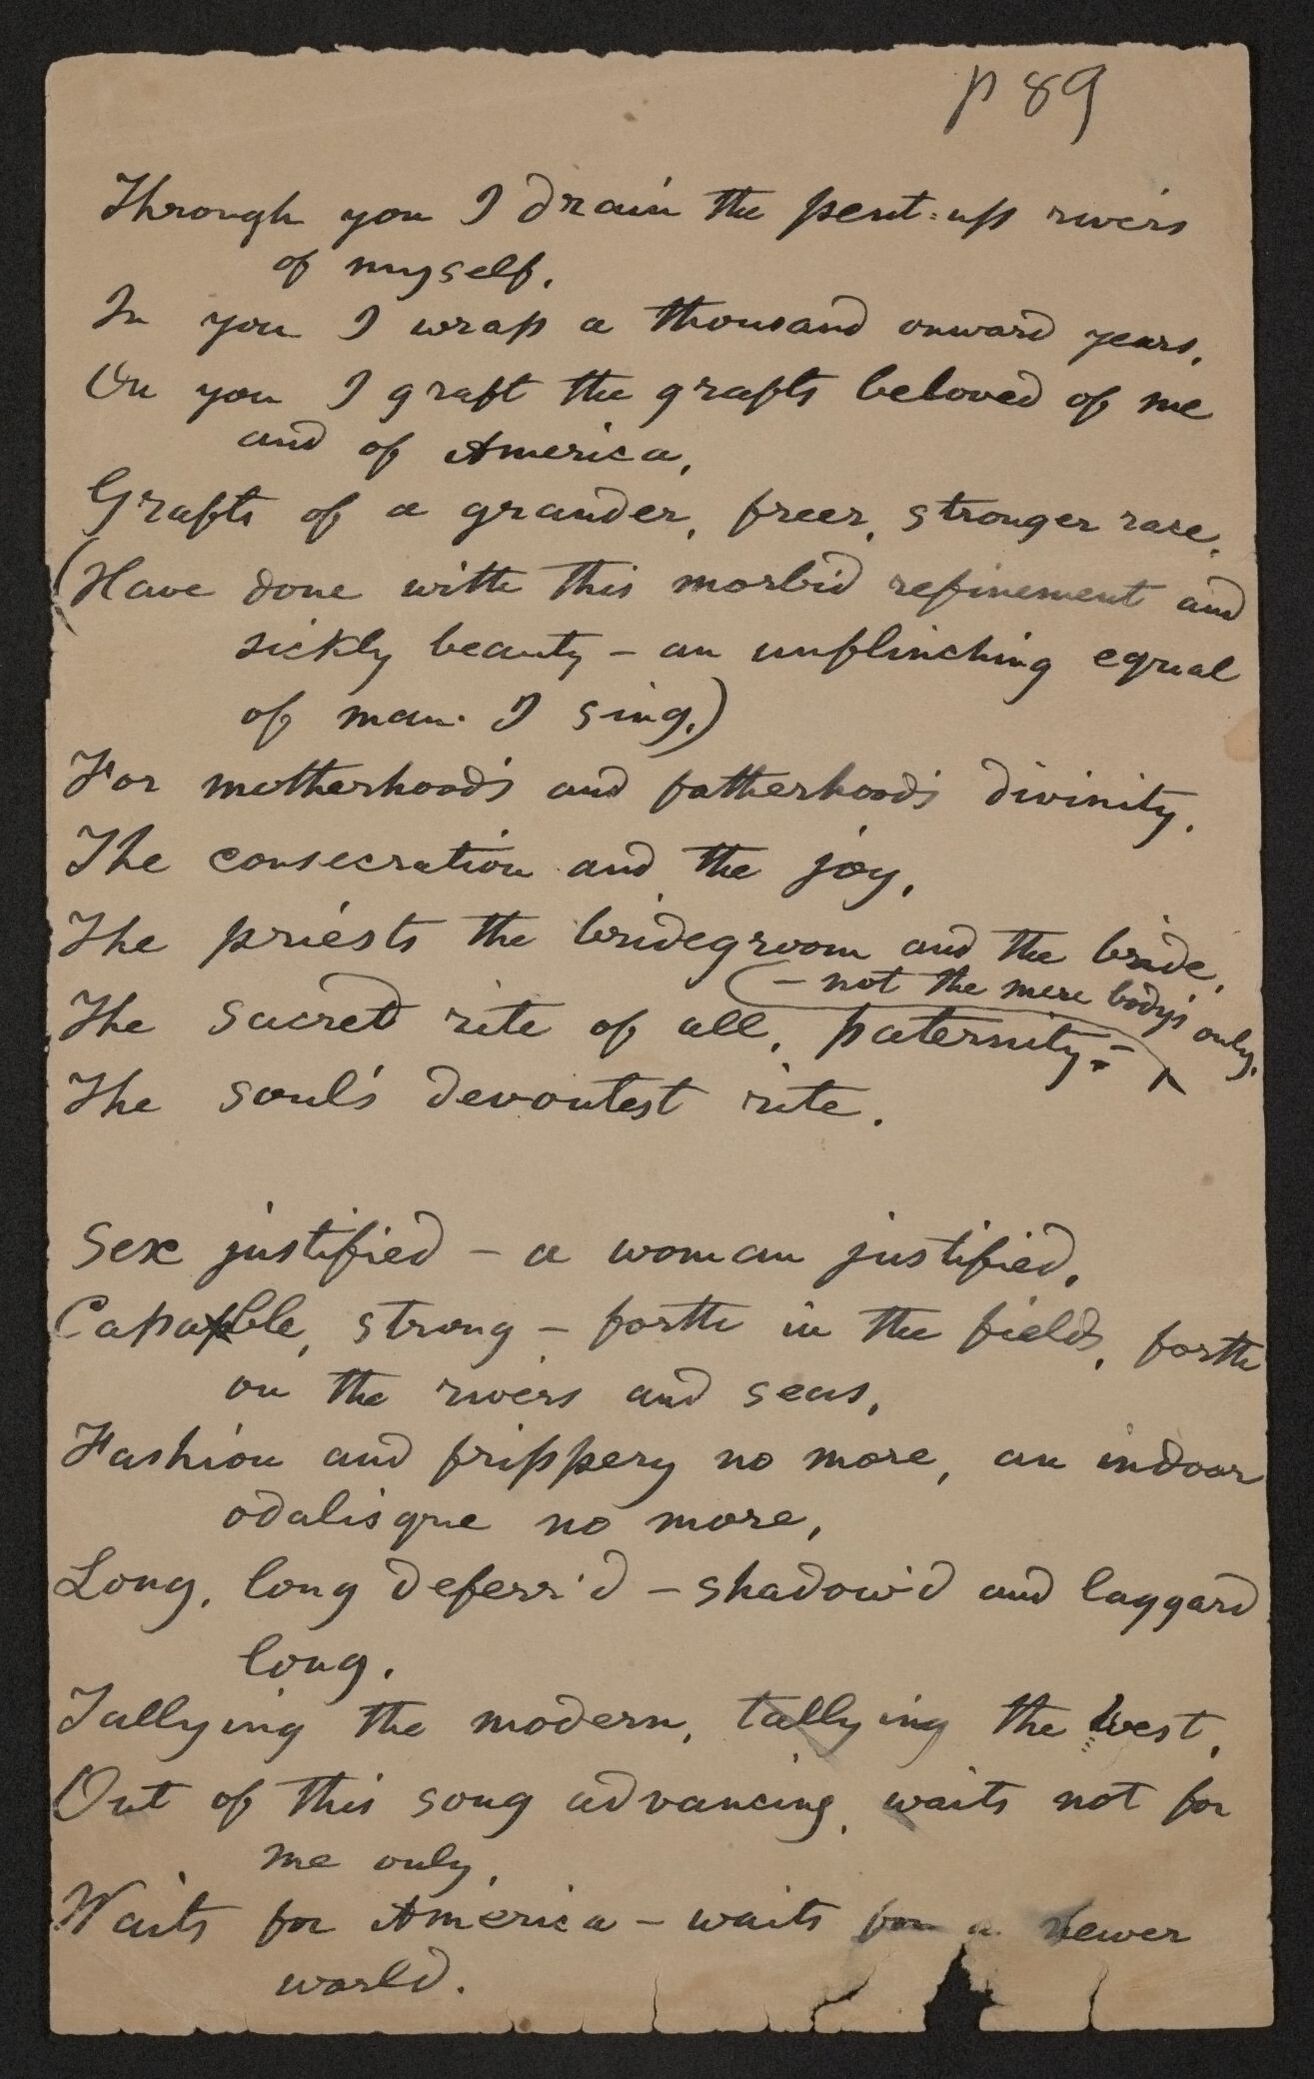 p 89
Through you I drain the pent-up rivers
of myself,
In you I wrap a thousand onward years,
On you I graft the grafts beloved of me
and of America,
Grafts of a grander, freer, stronger race,
(Have done with this morbid refinement and
sickly beauty – an unflinching equal
of man I sing.)
For motherhood's and fatherhood's divinity,
The consecration and the joy,
The priests the bridegroom and the bride,
– not the mere body's only,
The sacred rite of all, paternity –
The soul's devoutest rite.
Sex justified – a woman justified,
Capable, strong – forth in the fields, forth
on the rivers and seas,
Fashion and frippery no more, an indoor
odalisque no more,
Long, long deferr'd – shadow'd and laggard
long,
Tallying the modern, tallying the West,
Out of this song advancing, waits not for
me only,
Waits for America – waits for a newer
world.